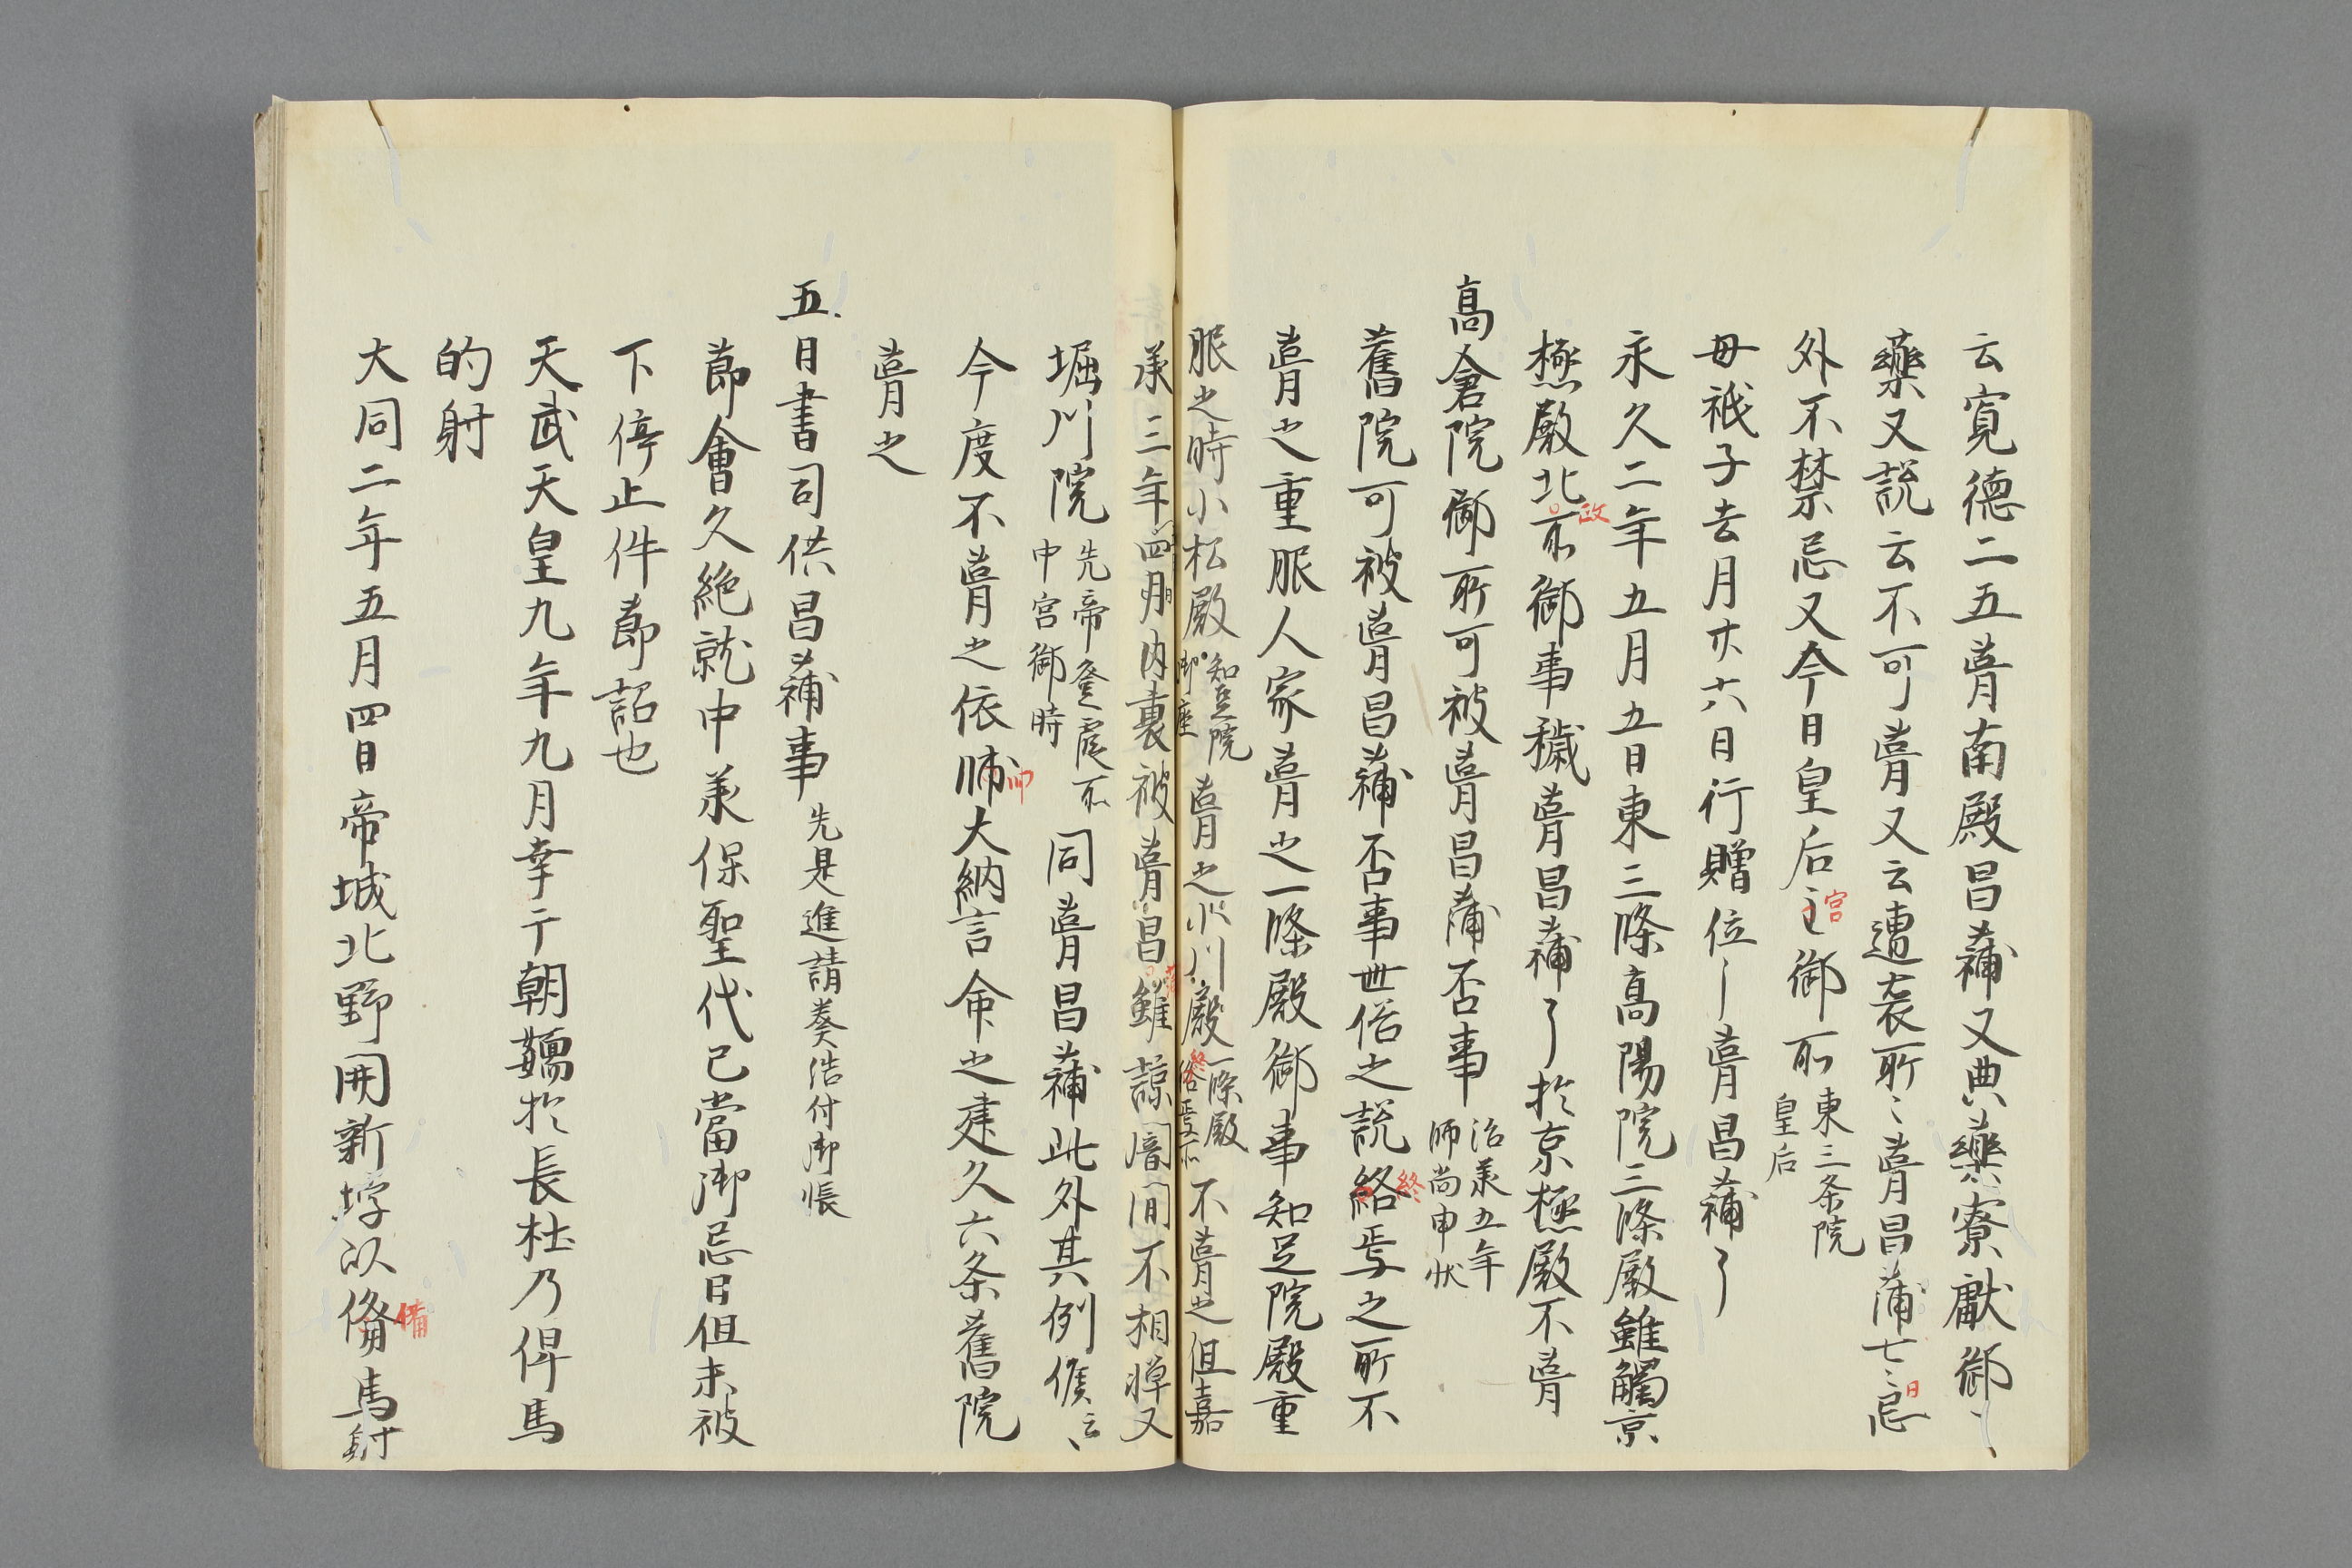 云寛德二五葺南殿昌蒲又典藥寮獻御
藥又説云不可葺又云遭喪所〻葺昌蒲七〻忌
日
外不禁忌又今日皇后之御所東三条院
皇后
宮
母祇子去月廿六日行贈位葺昌蒲了
永久二年五月五日東三條高陽院三條殿雖觸京
極殿北所御事穢葺昌蒲了於京極殿不葺
政
高倉院御所可被葺昌蒲否事治承五年
師尚申状
舊院可被葺昌蒲否事世俗之説絡焉之所不
終
葺之重服人家葺之一條殿御事知足院殿重
服之時小松殿知足院
御座葺之小川殿一條殿
終焉所不葺之但嘉
承三年四月内裏被葺昌雖諒闇間不相憚又
蒲
堀川院先帝登霞所
中宮御時同葺昌蒲此外其例儀云〻
今度不葺之依師大納言命之建久六条舊院
帥
葺之
五月書司供昌蒲事先是進請奏浩付御帳
節會久絶就中承保聖代已當御忌日但未被
下停止件節詔也
天武天皇九年九月幸于朝嬬於長杜乃俾馬
的射
大同二年五月四日帝城北野開新埒以俻馬射
備